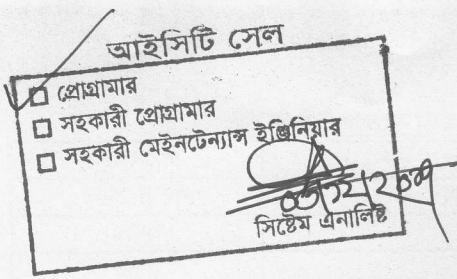 আইসিটি সেল
প্রোগ্রামার
সহকারী প্রোগ্রামার
সহকারী মেইনটেন্যান্স ইঞ্জিনিয়ার
সিষ্টেম এনালিষ্ট